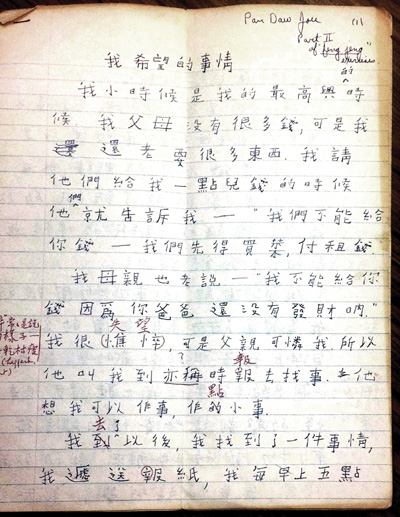 Pan Daw Jou (1)
Part II
of "feng jeng"
exercises
我希望的事情
我小時候是我的最高興的時
候 我父母没有很多錢,可是我
還老要很多東西.我請
他們給我一點兒錢的時候
他們就告訴我—"我們不能給
你錢—我們先得買菜,付租錢.
我母親也老說—"我不能給你
錢因爲你爸爸還没有發財吶."
失望
我很(憔悴)可是父親可憐我所以
報
他叫我到亦稱時報去找事.他
點
想我可以作事,作的小事.
去了
我到以後,我找到了一件事情,
我遞送報紙,我每早上五點